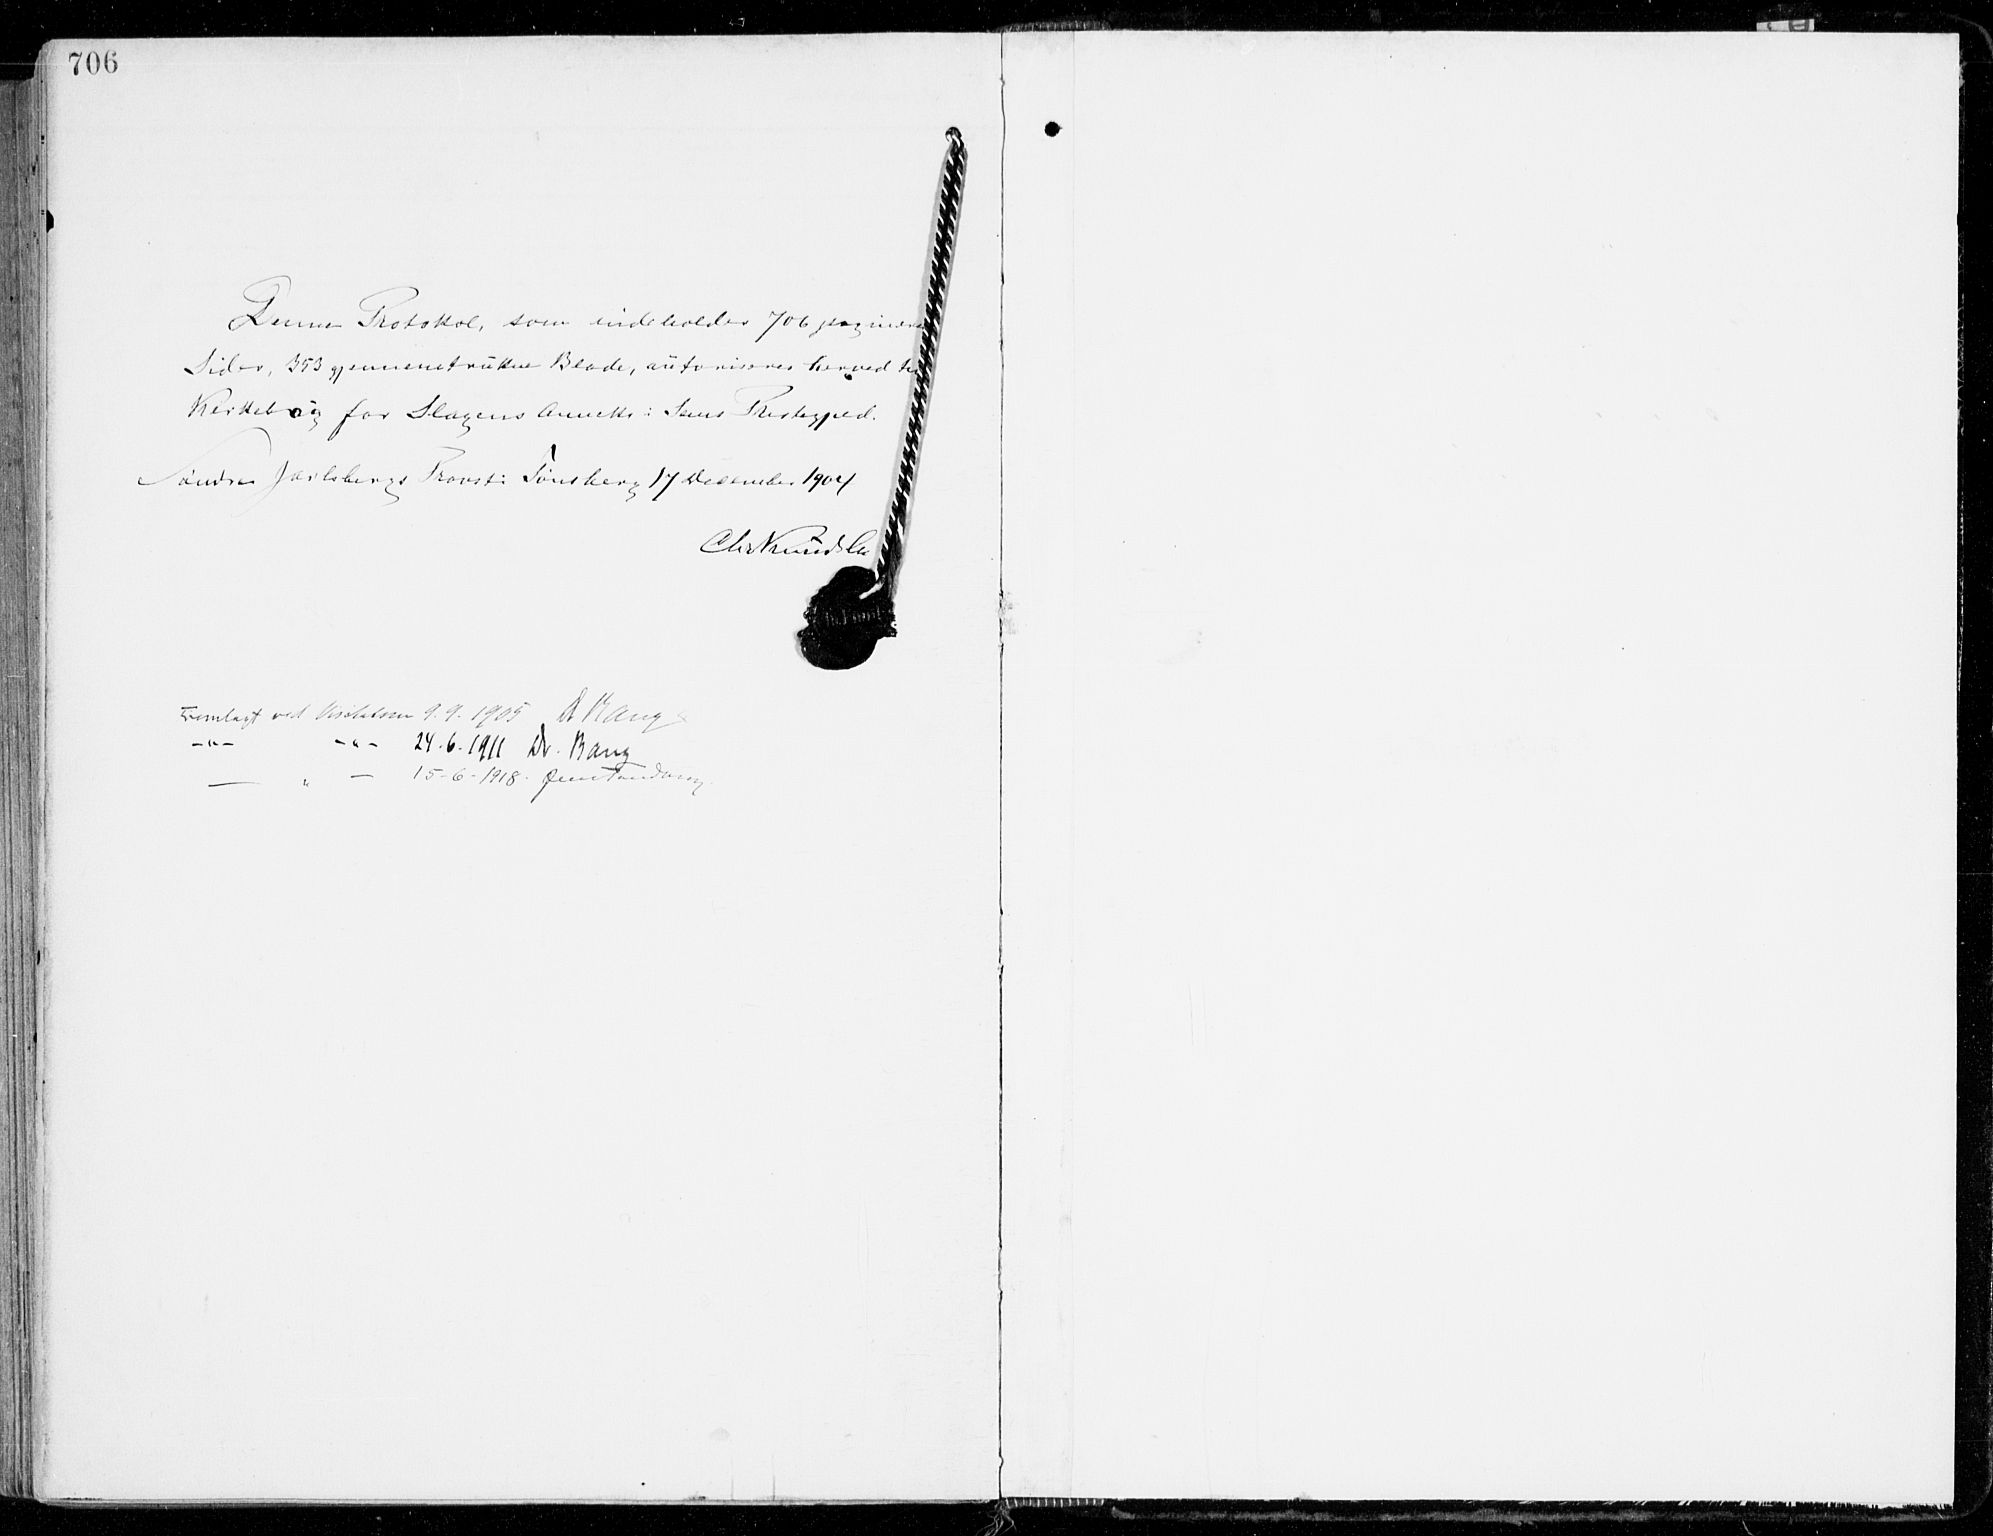 706
Denne Protokol, som indeholder 706 paginere
Sider, 353 gjennemtrukne Blade, autoriseres herved ti
Kirkebog for Slagens Anneks i Sems Prestegjeld.
Søndre Jarlsbergs Provsti Tønsberg 17 December 1904
Chr Knudsen
Fremlagt ved Visitatsen 9.9.1905 Dr Bang
-"- -"- 24.6.1911 Dr. Bang
— " — 15-6-1918. Jens Tandberg.